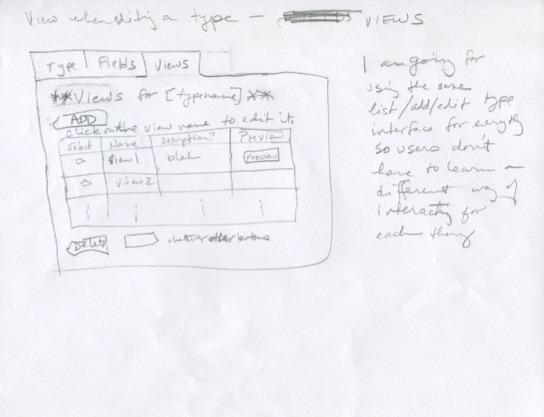 View when editing a type — VIEWS
Type Fields Views
**Views for [typename] **
ADD
click on the view name to edit it.
Select Name Description? Preview
View1 blah Preview
View2
Delete other buttons
I am going for
using the same
list/add/edit type
interface for everything
so users don't
have to learn a
different way of
interacting for
each thing